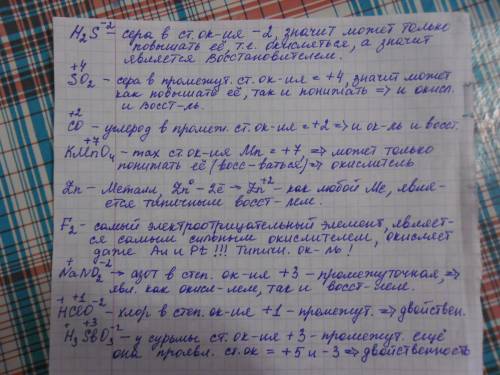 H₂S⁻² – сера в ст. ок-ия -2, значит может только
повышать её, т.е. окисляться, а значит
является восстановителем.
+4
SO₂ – сера в промежут. ст. ок-ия = +4, значит может
как повышать её, так и понижать => и окисл.
и восст-ль.
+2
CO – углерод в промеж. ст. ок-ия = +2 => и ок-ль и восст.
+7
KMnO₄ – max ст. ок-ия Mn = +7, => может только
понижать её (восс-ваться) => окислитель
Zn – металл, Zn⁰ - 2ē → Zn⁺² – как любой Ме, явля-
ется типичным восст-лем.
F₂ – самый электроотрицательный элемент, являет-
ся самым сильным окислителем, окисляет
даже Au и Pt !!! Типичн. ок-ль!
+ -2
NaNO₂ → азот в степ. ок-ия +3 – промежуточная, =>
явл. как окисл-лем, так и восст-лем.
+ +1 -2
HClO – хлор в степ. ок-ия +1 – промежут. => двойствен.
+ +3 -2
H₃SbO₃ – у сурьмы ст. ок-ия +3 – промежут. ещё
она проявл. ст. ок = +5 и -3 => двойственность